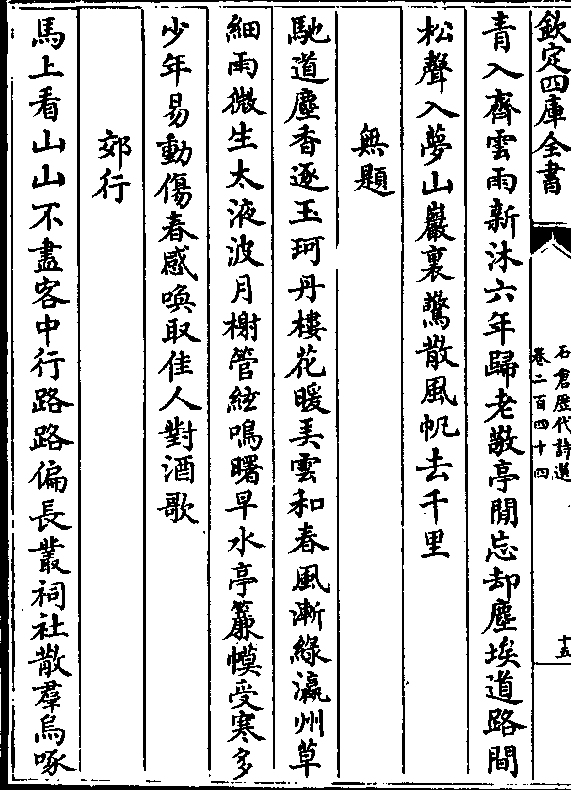 欽定四庫全書
石倉歷代詩選
卷二百四十四
十五
青入齊雲雨新沐六年歸老敬亭閒忘却塵埃道路間
松聲入夢山巖裏驚散風帆去千里
無題
馳道塵香逐玉珂丹樓花暖美雲和春風漸綠瀛州草
細雨微生太液波月榭管絃鳴曙早水亭簾幙受寒多
少年易動傷春感喚取佳人對酒歌
郊行
馬上看山山不盡客中行路路偏長叢祠社散羣烏啄